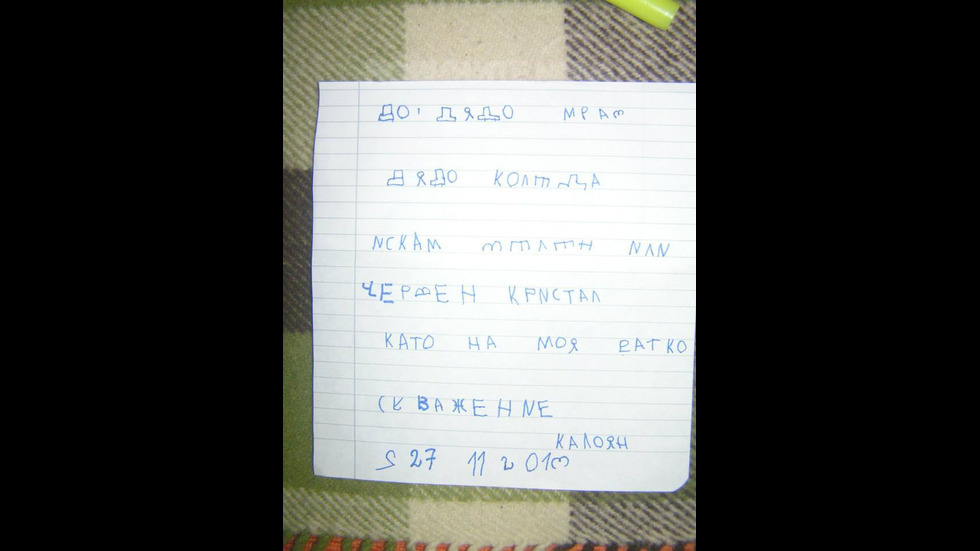 ДО: ДЯДО МРАЗ
ДЯДО КОЛЕДА
ИСКАМ ЗЕЛЕН ИЛИ
ЧЕРВЕН КРИСТАЛ
КАТО НА МОЯ БАТКО
СК ВАЖЕНИЕ
КАЛОЯН
S 27 11 2013